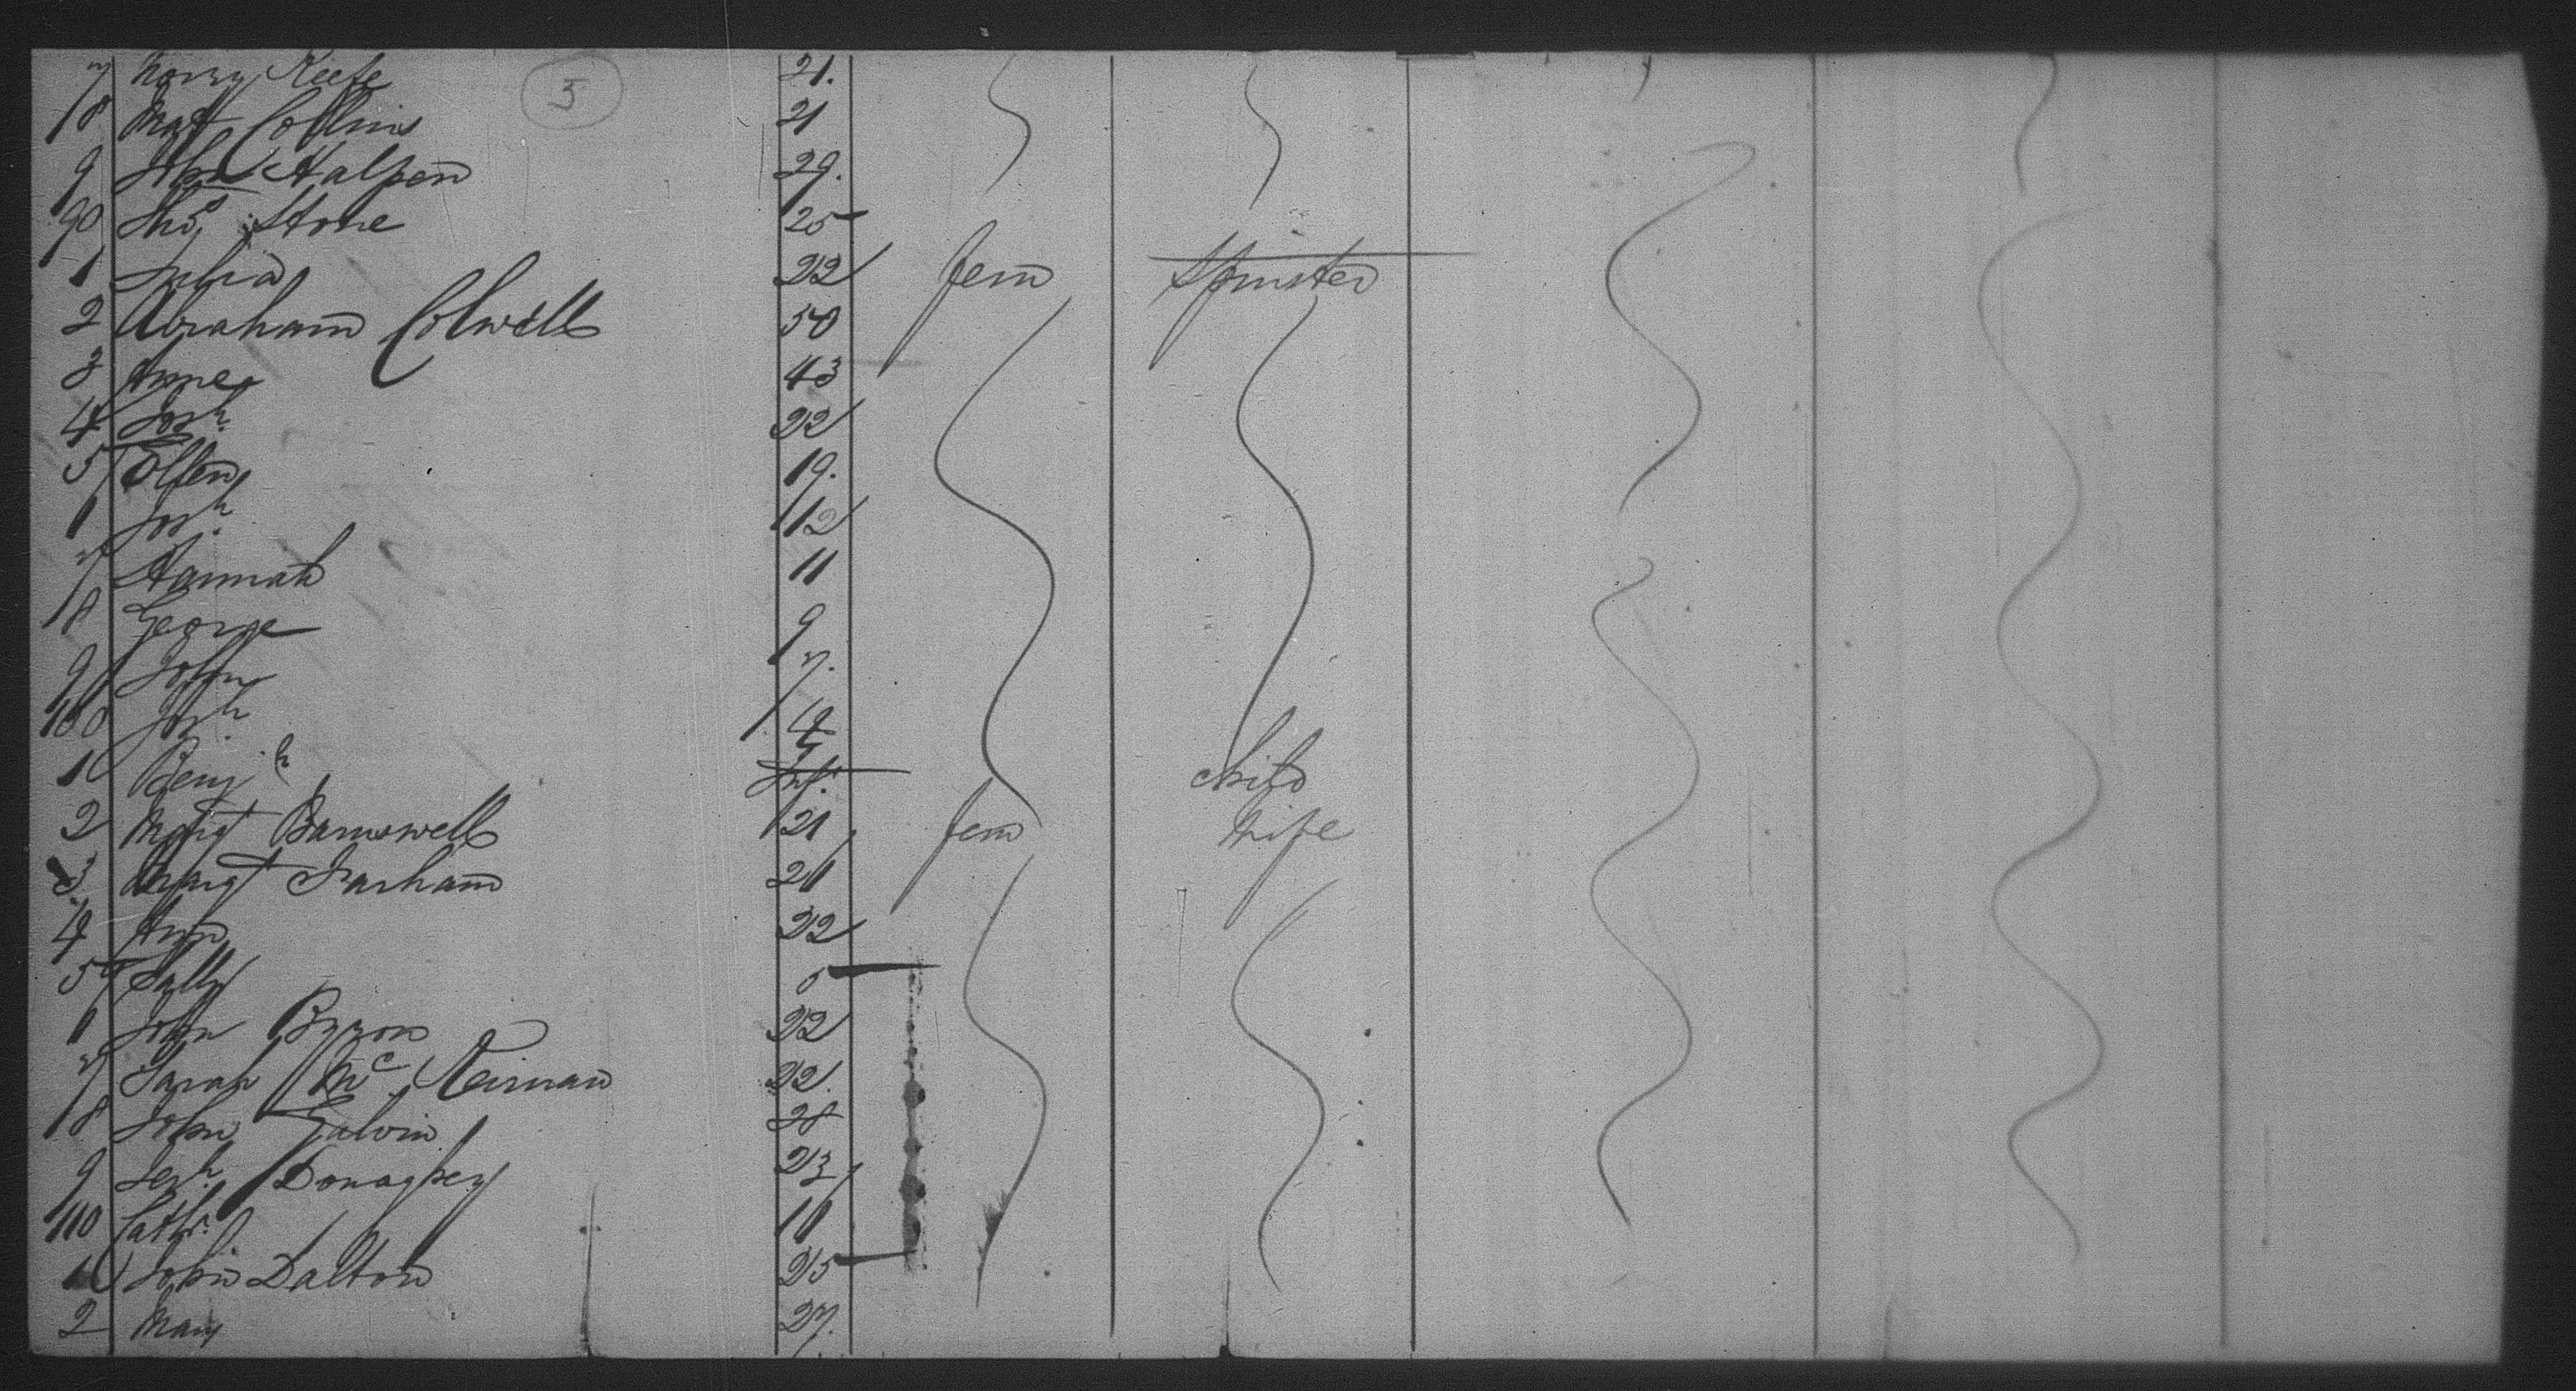 5
7 Norry Keefe 21.
8 Mat Collins 21
9 John Halpen 29.
90 Thos Stone 25
1 Julia 22 fem Spinster
2 Abraham Colwell 50
3 Anne 43
4 Josh. 22
5 Ellen 19.
1 Josh. 12
7 Hannah 11
8 George 9
9 John 7.
100 Josh. 4
1 Benj Inf. child
2 Margt Barnswell 21 fem Wife
3 Margt Farham 21
4 Ann 22
5 Sally 5
1 John Byron 22
7 Sarah Mc Keirnan 22.
8 John Galvin 28
9 Donaghey 23
110 Cathr. 11
1 John Dalton 25
2 Mary 27.